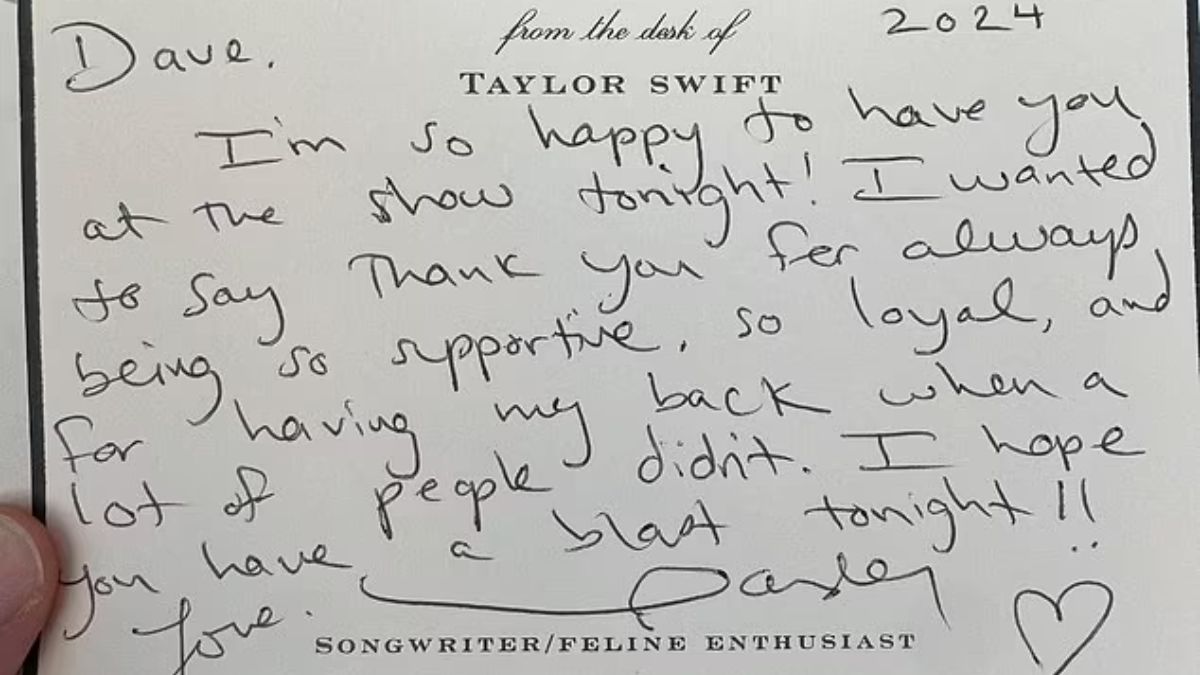 from the desk of
TAYLOR SWIFT
2024
Dave.
I'm so happy to have you
at the show tonight! I wanted
to say Thank you for always
being so supportive, so loyal, and
for having my back when a
lot of people didn't. I hope
you have a blast tonight!!
Love.
SONGWRITER/FELINE ENTHUSIAST